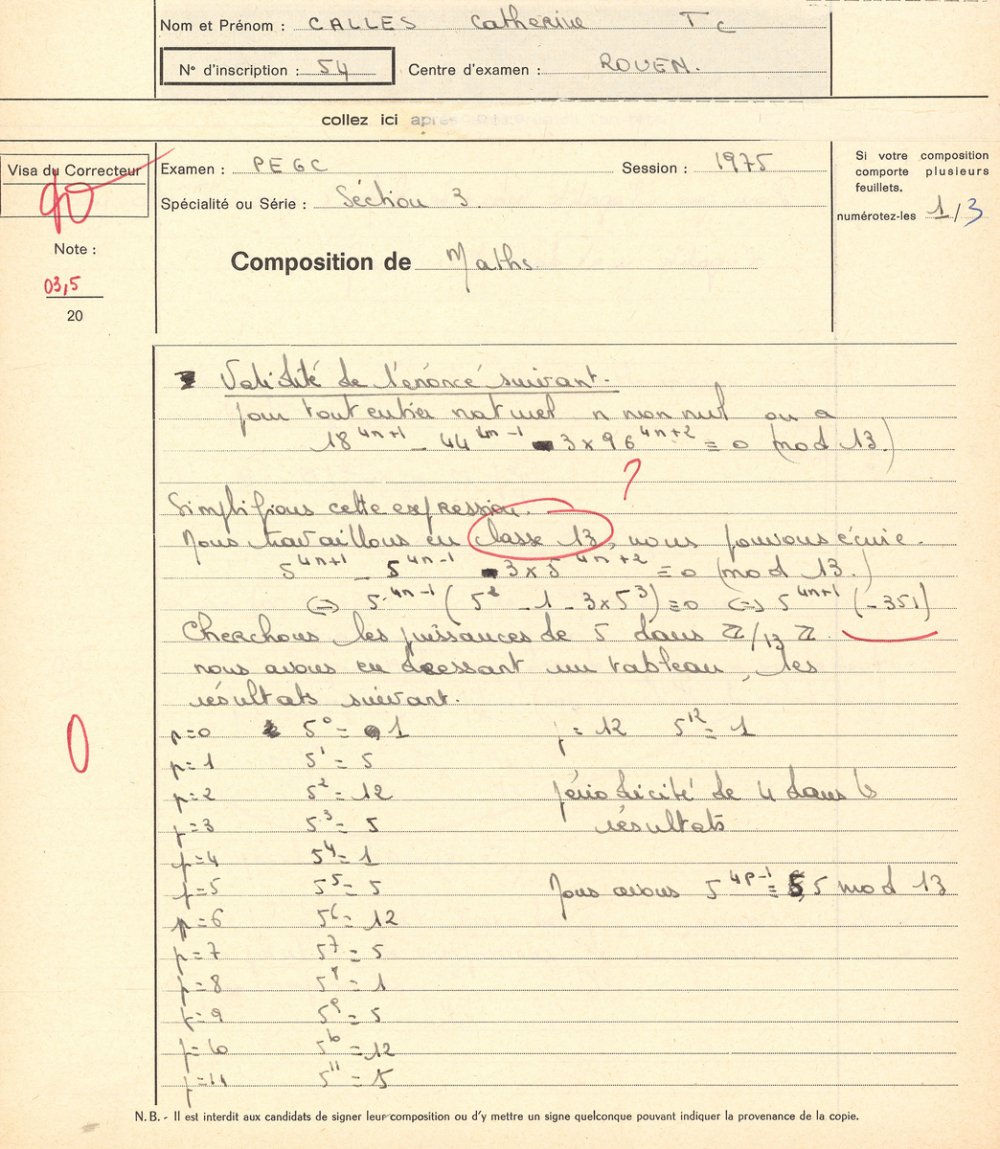 Nom et Prénom : CALLES Catherine TC
N° d'inscription : 54 Centre d'examen : ROUEN.
collez ici
Visa du Correcteur
Note :
03,5
20
Examen : PEGC Session : 1975
Spécialité ou Série : Séction 3.
Composition de Maths
Si votre composition
comporte plusieurs
feuillets.
numérotez-les 1/3
Validité de l'énoncé suivant.
pour tout entier naturel n non nul on a
18^4n+1 - 44^4n-1 - 3×96^4n+2 ≡ 0 (mod 13.)
?
Simplifions cette expression.
Nous travaillons en classe 13, nous pouvons écrire.
5^4n+1 - 5^4n-1 - 3×5^4n+2 ≡ 0 (mod 13.)
⇔ 5^4n-1 (5² - 1 - 3×5³) ≡ 0 ⇔ 5^4n+1 (-351)
Cherchons les puissances de 5 dans Z/13 Z.
nous avons en dressant un tableau, les
résultats suivant.
0
p=0 5⁰ = 1 p = 12 5¹² = 1
p=1 5¹ = 5
p=2 5² = 12 périodicité de 4 dans ls
p=3 5³ = 5 résultats
p=4 5⁴ = 1
p=5 5⁵ = 5 Nous avons 5^4p-1 ≡ 5 mod 13
p=6 5⁶ = 12
p=7 5⁷ = 5
p=8 5⁸ = 1
p=9 5⁹ = 5
p=10 5¹⁰ = 12
p=11 5¹¹ = 5
N. B. - Il est interdit aux candidats de signer leur composition ou d'y mettre un signe quelconque pouvant indiquer la provenance de la copie.